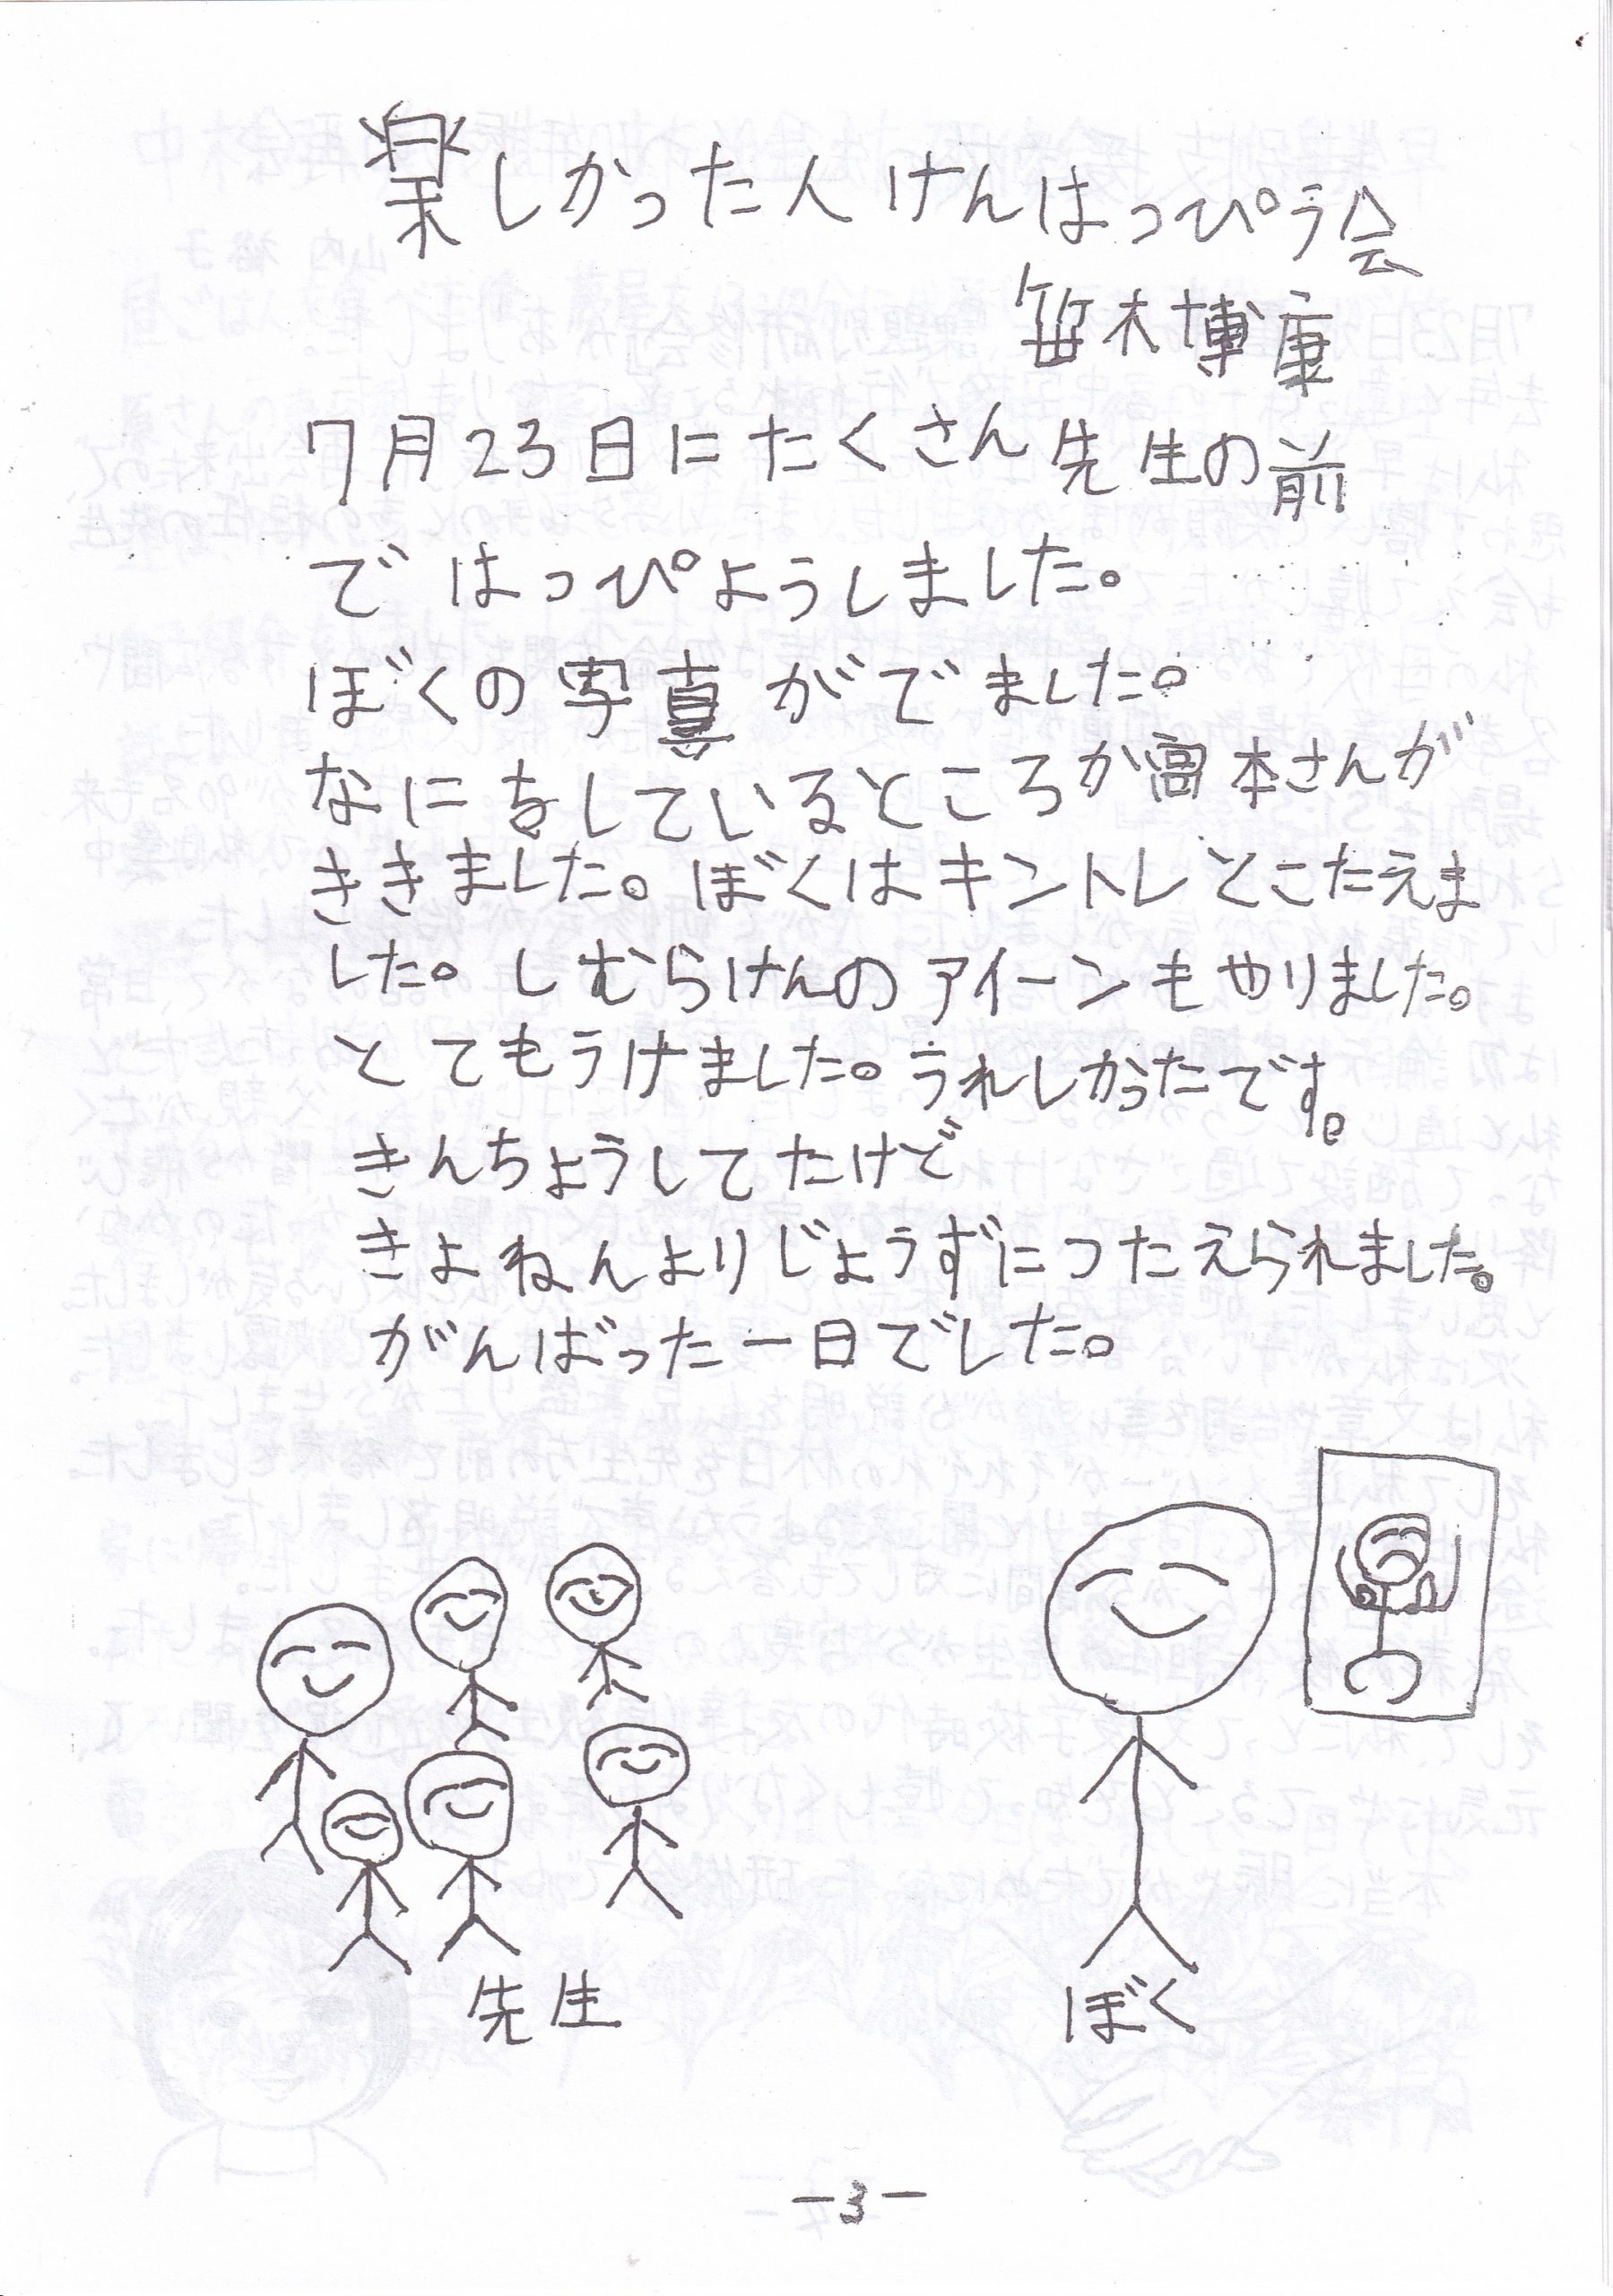 楽しかった人けんはっぴう会
笹木博康
7月23日にたくさん先生の前
ではっぴようしました。
ぼくの写真がでました。
なにをしているところか宮本さんが
ききました。ぼくはキントレとこたえま
した。しむらけんのアイーンもやりました。
とてもうけました。うれしかったです。
きんちょうしてたけど
きよねんよりじょうずにつたえられました。
がんばった一日でした。
先生
ぼく
-3-